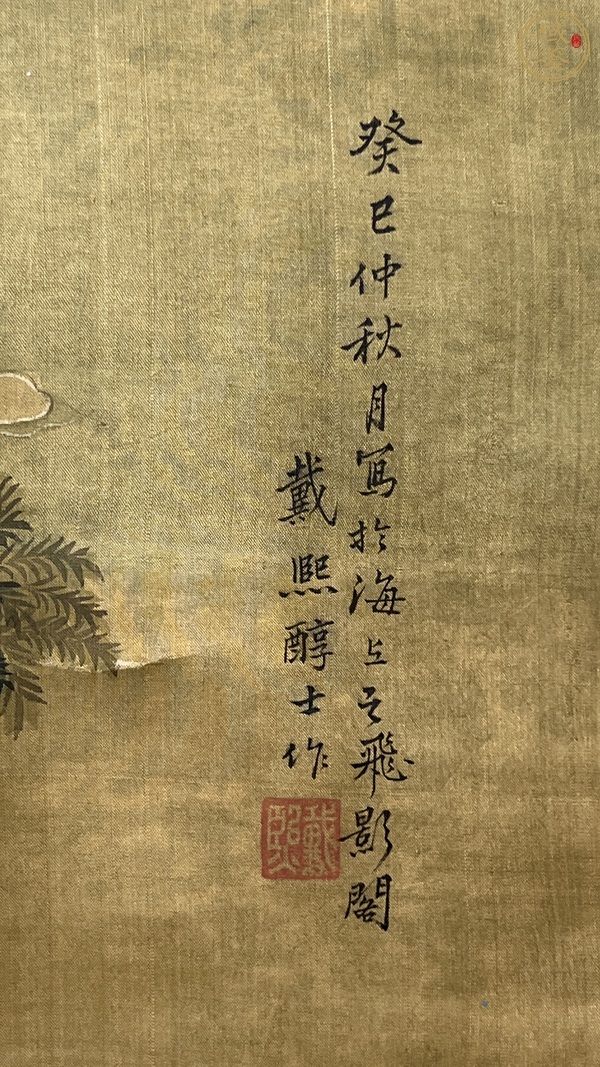 癸巳仲秋月寫於海上之飛影閣
戴熙醇士作
戴熙